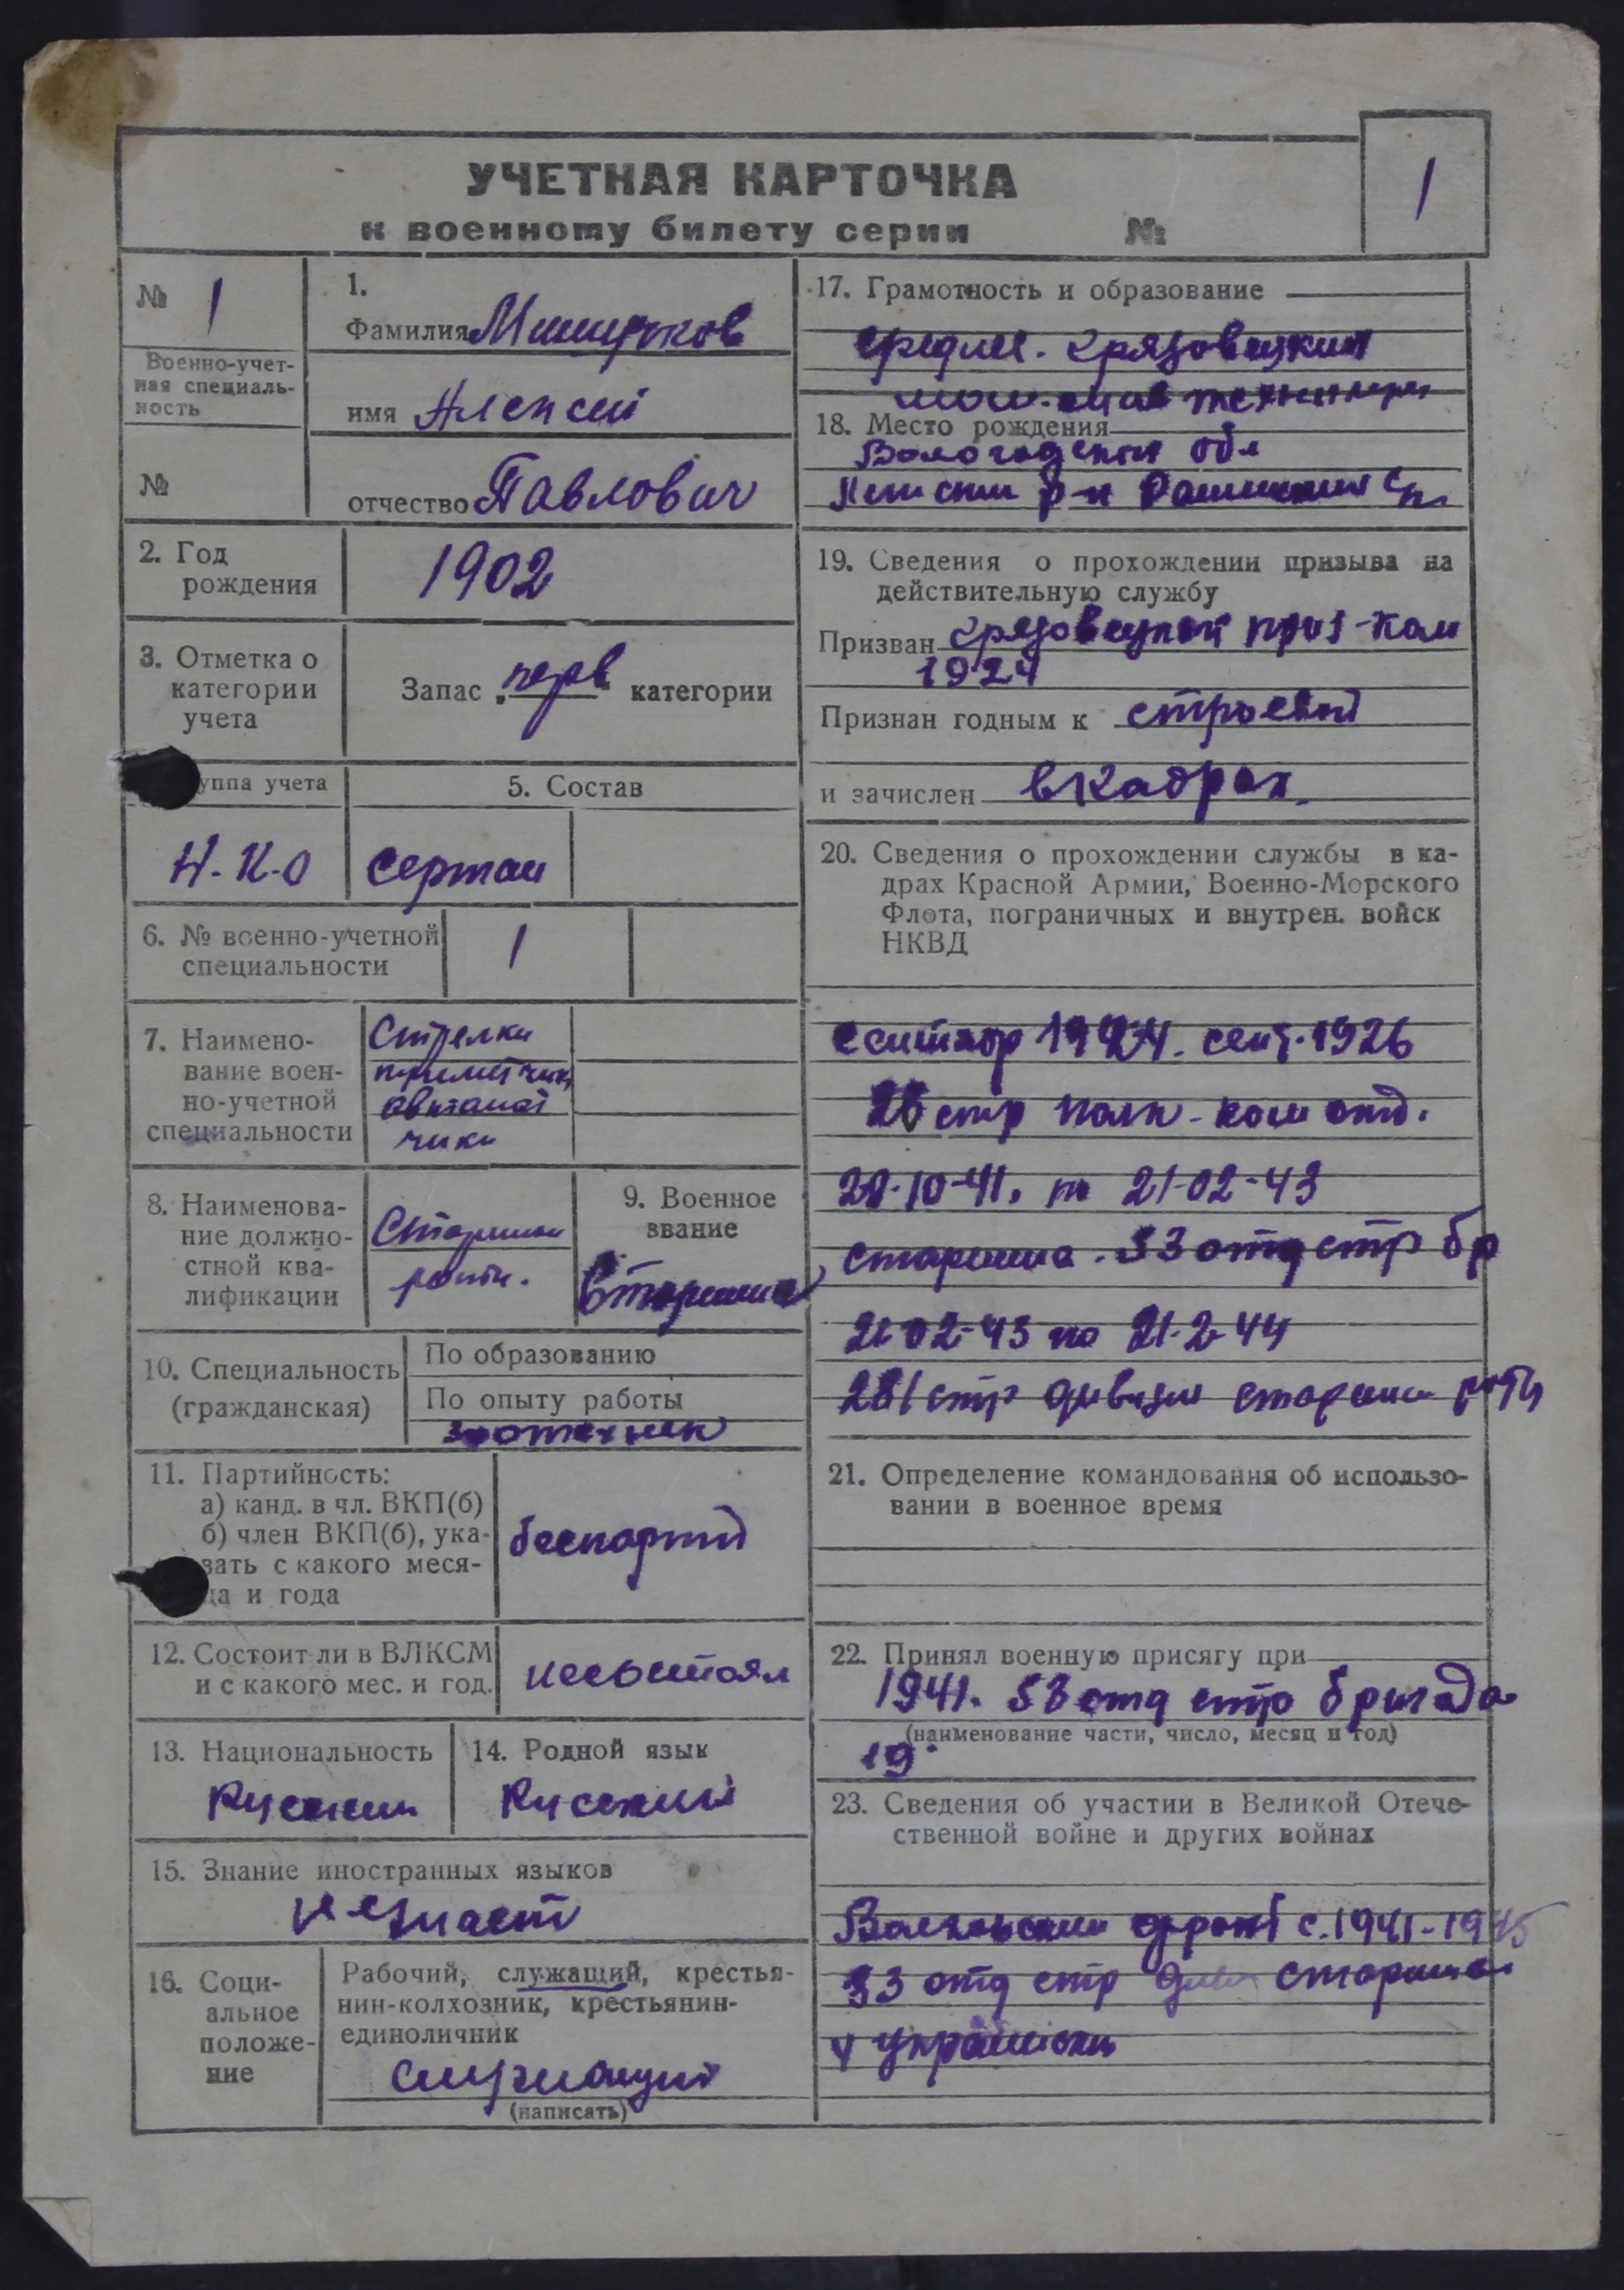 УЧЕТНАЯ КАРТОЧКА
к военному билету серии №
1
№ 1
Военно-учет-
ная специаль-
ность
№
1.
Фамилия Мишуков
имя Алексей
отчество Павлович
2. Год
рождения
1902
3. Отметка о
категории
учета
Запас „перв“ категории
уппа учета
Н.К.О
5. Состав
сержан
6. № военно-учетной
специальности
1
7. Наимено-
вание воен-
но-учетной
специальности
Стрелки
автомат
чики
8. Наименова-
ние должно-
стной ква-
лификации
Старшин
роты.
9. Военное
звание
Старшина
10. Специальность
(гражданская)
По образованию
По опыту работы
зоотехник
11. Партийность:
а) канд. в чл. ВКП(б)
б) член ВКП(б), ука-
зать с какого меся-
ца и года
беспартий
12. Состоит ли в ВЛКСМ
и с какого мес. и год.
несостоял
13. Национальность
Русский
14. Родной язык
Русский
15. Знание иностранных языков
незнает
16. Соци-
альное
положе-
ние
Рабочий, служащий, крестья-
нин-колхозник, крестьянин-
единоличник
служащий
(написать)
17. Грамотность и образование
средне. Грязовецкий
техникум
18. Место рождения
Вологодская обл
р-н
19. Сведения о прохождении призыва на
действительную службу
Призван Грязовецкой приз-ком
1924
Признан годным к строевой
и зачислен в кадрах.
20. Сведения о прохождении службы в ка-
драх Красной Армии, Военно-Морского
Флота, пограничных и внутрен. войск
НКВД
сентябр 1924. сент. 1926
стр полк - ком отд.
10-41. по 21-02-43
старшина. 53 отд стр бр
21-02-43 по 21-2-44
281 стр дивизии старшин роты
21. Определение командования об использо-
вании в военное время
22. Принял военную присягу при
1941. 53 отд стр бригада
(наименование части, число, месяц и год)
19
23. Сведения об участии в Великой Отече-
ственной войне и других войнах
Волховский фронт с. 1941-1945
53 отд стр див старшина
4 украински